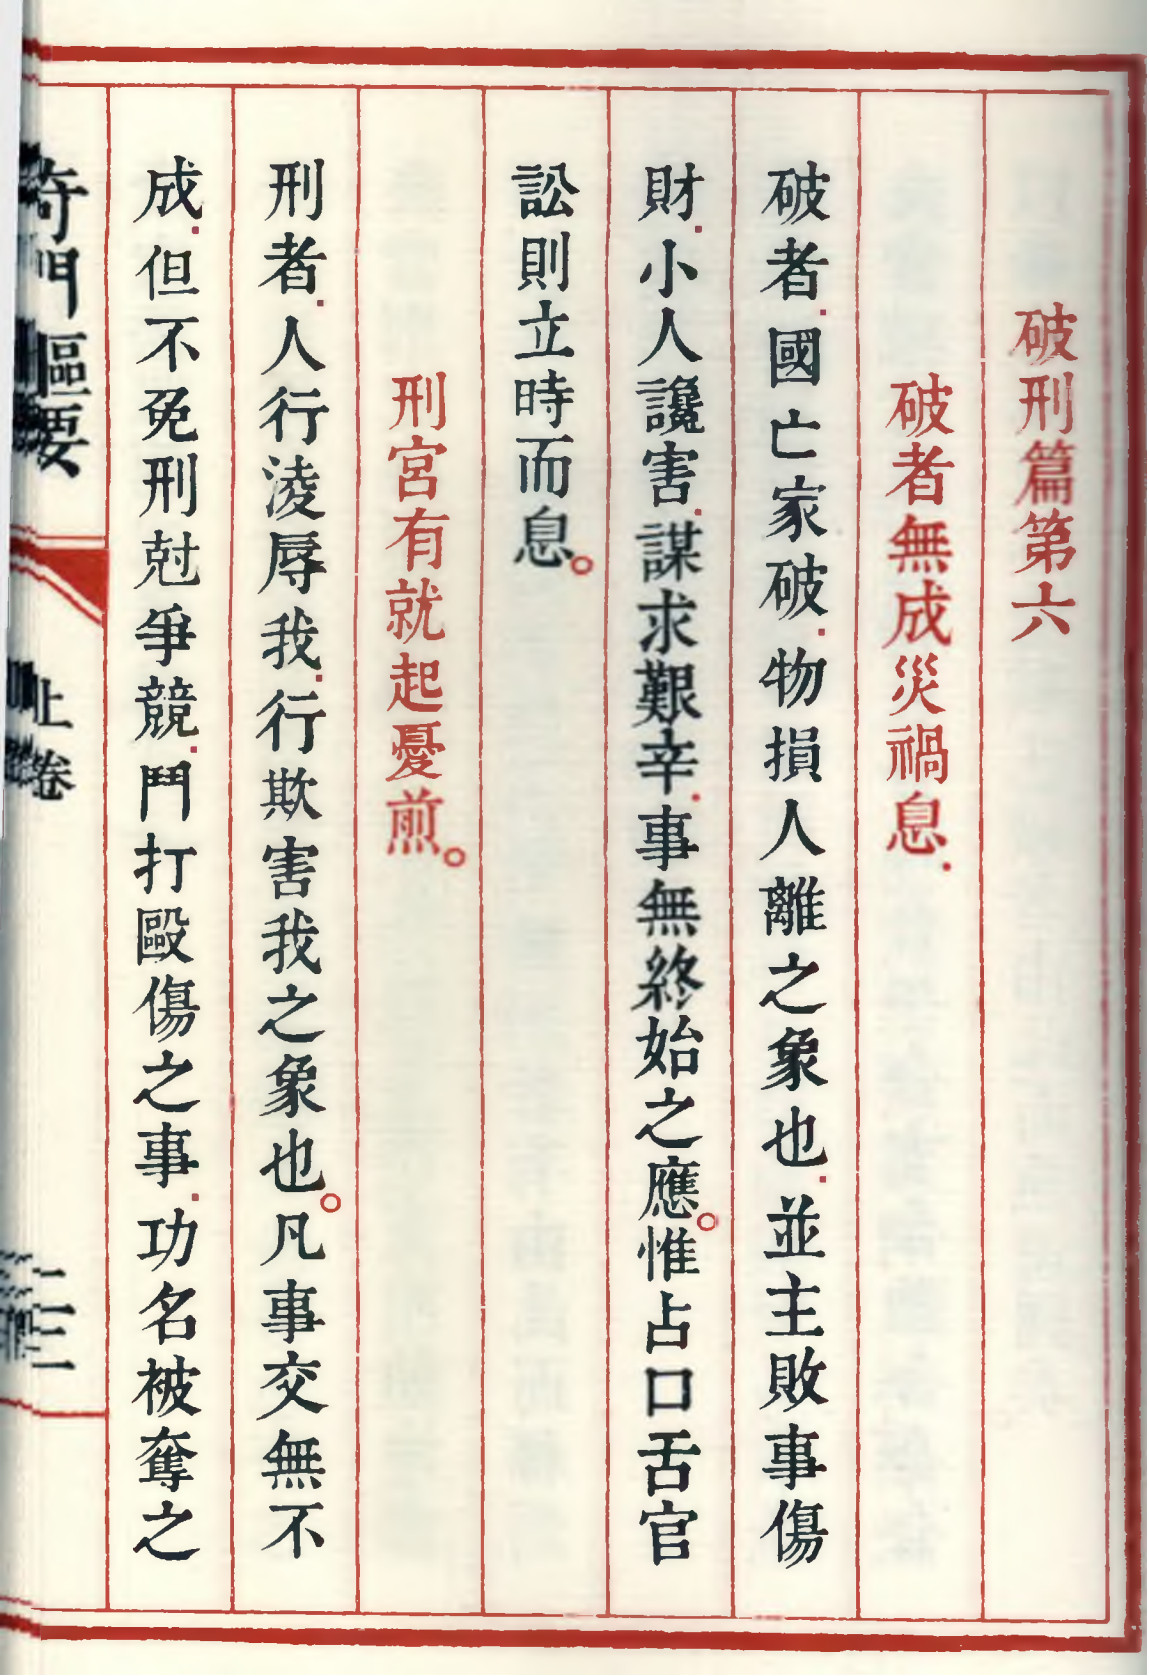 破刑篇第六
破者無成災禍息.
破者.國亡家破.物損人離之象也.並主敗事傷
財.小人讒害.謀求艱辛.事無終始之應。惟占口舌官
訟則立時而息。
刑宮有就起憂煎。
刑者.人行淩辱我.行欺害我之象也。凡事交無不
成.但不免刑尅爭競.鬥打毆傷之事.功名被奪之
奇門樞要
上卷
二三